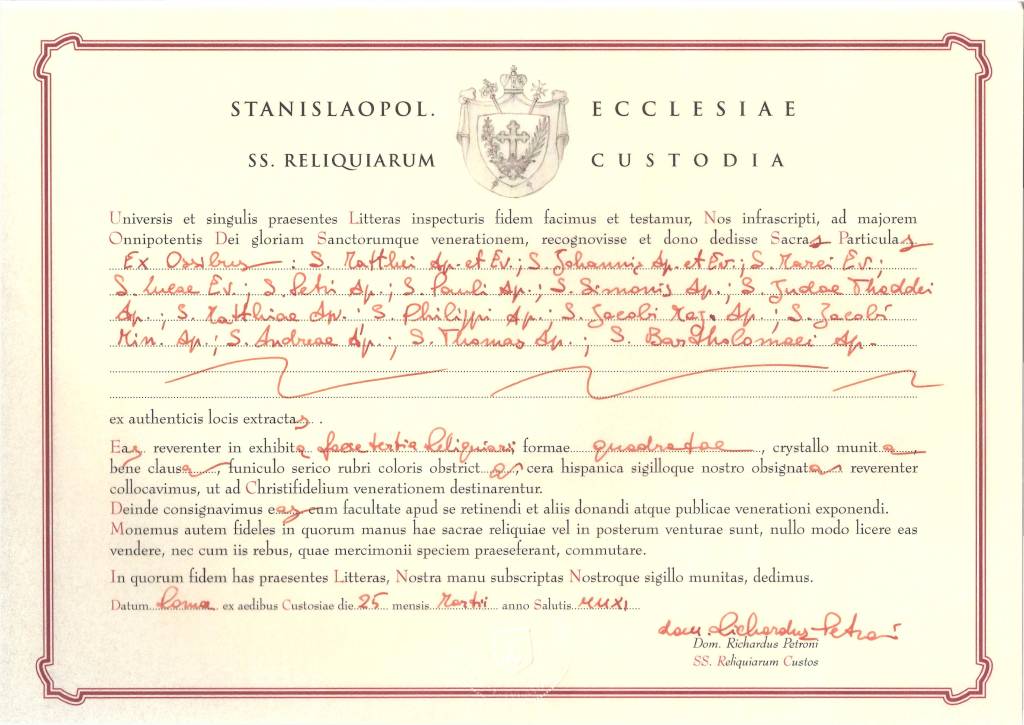 STANISLAOPOL. ECCLESIAE
SS. RELIQUIARUM CUSTODIA
Universis et singulis praesentes Litteras inspecturis fidem facimus et testamur, Nos infrascripti, ad majorem
Onnipotentis Dei gloriam Sanctorumque venerationem, recognovisse et dono dedisse Sacras Particulas
Ex Ossibus : S. Matthei Ap. et Ev.; S. Johannis Ap. et Ev.; S. Marci Ev.;
S. Lucae Ev.; S. Petri Ap.; S. Pauli Ap.; S. Simonis Ap.; S. Judae Thaddei
Ap.; S. Matthiae Ap.; S. Philippi Ap.; S. Jacobi Maj. Ap.; S. Jacobi
Min. Ap.; S. Andreae Ap.; S. Thomas Ap.; S. Bartholomaei Ap.
ex authenticis locis extractas .
Eas reverenter in exhibita tertia Reliquiarii, formae quadratae, crystallo munita,
bene clausa, funiculo serico rubri coloris obstrictas, cera hispanica sigilloque nostro obsignatas reverenter
collocavimus, ut ad Christifidelium venerationem destinarentur.
Deinde consignavimus eas cum facultate apud se retinendi et aliis donandi atque publicae venerationi exponendi.
Monemus autem fideles in quorum manus hae sacrae reliquiae vel in posterum venturae sunt, nullo modo licere eas
vendere, nec cum iis rebus, quae mercimonii speciem praeseferant, commutare.
In quorum fidem has praesentes Litteras, Nostra manu subscriptas Nostroque sigillo munitas, dedimus.
Datum Roma ex aedibus Custosiae die 25 mensis Martii anno Salutis MMXI
dom. Richardus Petroni
Dom. Richardus Petroni
SS. Reliquiarum Custos